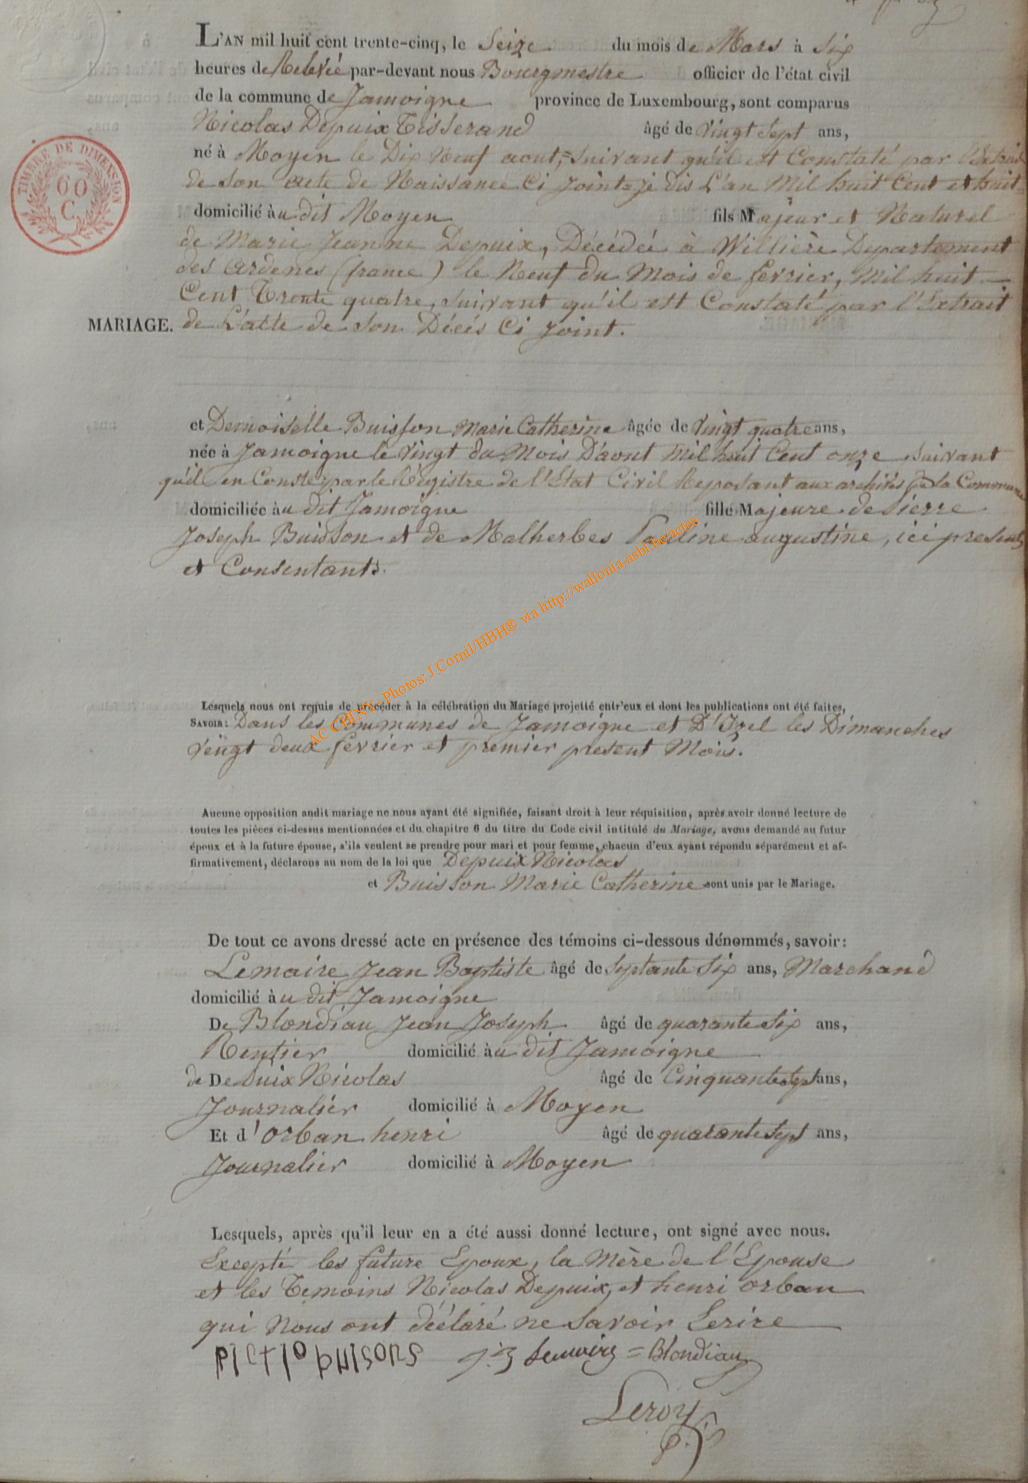 L'AN mil huit cent trente-cinq, le Seize du mois de Mars à Six
heures de Relevée par-devant nous Bourgmestre officier de l'état civil
de la commune de Jamoigne province de Luxembourg, sont comparus
Nicolas Depuix Tisserand âgé de Vingt Sept ans,
né à Moyen le Dix Neuf aout, Suivant qu'il est Constaté par l'Extrait
de Son acte de Naissance Ci Joint, je dis L'an Mil huit Cent et huit
domicilié àu dit Moyen fils Majeur et Naturel
de Marie Jeanne Depuix, Décédée à Williere Departement
des Ardenes (france) le Neuf du Mois de fevrier, Mil huit
Cent Trente quatre, Suivant qu'il est Constaté par l'Extrait
MARIAGE. de L'acte de Son Décés Ci Joint.
et Demoiselle Buisson Marie Catherine âgée de Vingt quatre ans,
née à Jamoigne le Vingt du Mois D'aout Mil huit Cent onze Suivant
qu'il en Conste par le Régistre de l'Etat Civil Reposant aux archives de la Commune
domiciliée àu dit Jamoigne fille Majeure de Pierre
Joseph Buisson et de Malherbes Pauline augustine, ici presents
et Consentants.
Lesquels nous ont requis de procéder à la célébration du Mariage projetté entr'eux et dont les publications ont été faites,
SAVOIR: Dans les Communes de Jamoigne et D'Izel les Dimanches
Veingt deux fevrier et premier present Mois.
Aucune opposition audit mariage ne nous ayant été signifiée, faisant droit à leur réquisition, après avoir donné lecture de
toutes les pièces ci-dessus mentionnées et du chapitre 6 du titre du Code civil intitulé du Mariage, avons demandé au futur
époux et à la future épouse, s'ils veulent se prendre pour mari et pour femme, chacun d'eux ayant répondu séparément et af-
firmativement, déclarons au nom de la loi que Depuix Nicolas
et Buisson Marie Catherine sont unis par le Mariage.
De tout ce avons dressé acte en présence des témoins ci-dessous dénommés, savoir:
Lemaire Jean Baptiste âgé de Septante Six ans, Marchand
domicilié àu dit Jamoigne
De Blondiau Jean Joseph âgé de quarante Six ans,
Rentier domicilié àu dit Jamoigne
de Depuix Nicolas âgé de Cinquante sept ans,
Journalier domicilié à Moyen
Et d'Orban henri âgé de quarante Sept ans,
Journalier domicilié à Moyen
Lesquels, après qu'il leur en a été aussi donné lecture, ont signé avec nous.
Excepté les future Epoux, la Mère de l'Epouse
et les Temoins Nicolas Depuix, et henri orban
qui Nous ont déclaré ne Savoir Serire
Blondiau
Leroy
TIMBRE DE DIMENSION
60
C.
AC CHINY - Photos: J.Cornil/HBH® via http://wallonia-asbl.be/actes